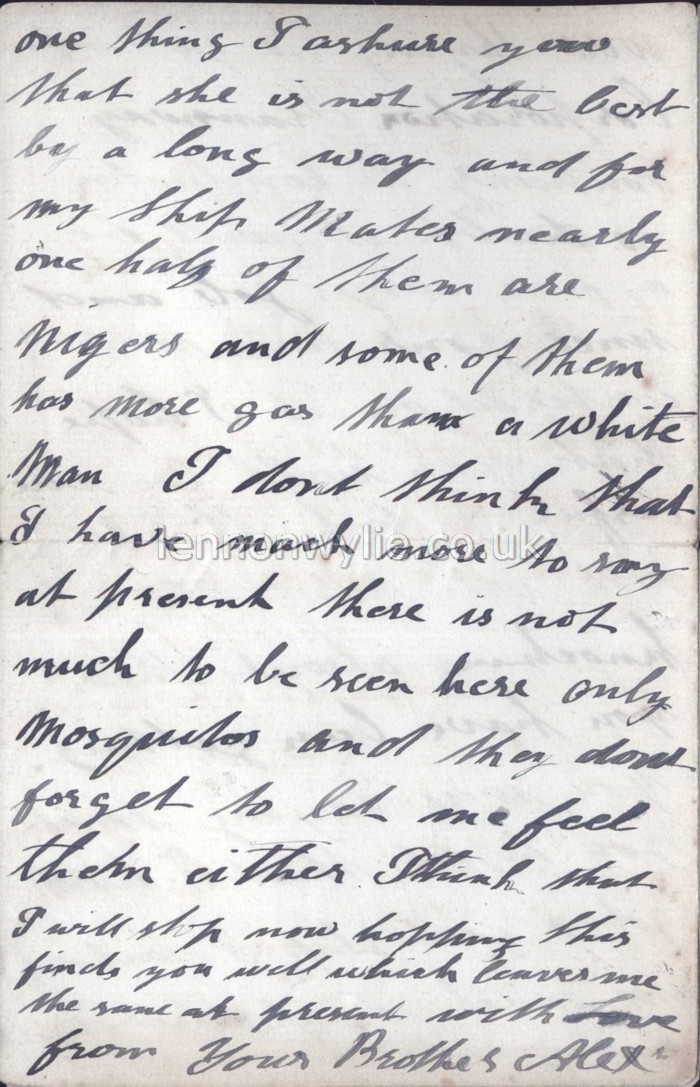 one thing I ashure you
that she is not the best
by a long way and for
my Ship Mates nearly
one half of them are
Nigers and some of them
has more gas than a white
Man I dont think that
I have much more to say
lennonwylie.co.uk
at present there is not
much to be seen here only
Mosquitos and they dont
forget to let me feel
them either I think that
I will stop now hopping this
finds you well which leaves me
the same at present with Love
from Your Brother Alex